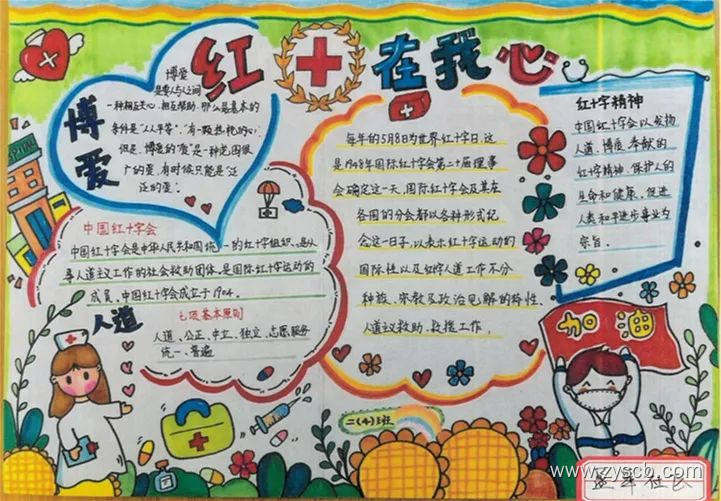 红十在我心
博爱
博爱
是指人与人之间
一种相互关心，相互帮助，那么最基本的
条件是"人人平等"，有一颗热忱的心！
但是，博爱的"爱"是一种范围很
广的爱，有时候只能是"泛
泛的爱。
每年的5月8日为世界红十字日，这
是1948年国际红十字会第二十届理事
会确定这一天，国际红十字会及其在
各国的分会都以各种形式纪
念这一日子，以表示红十字运动的
国际性以及红字人道工作不分
种族、宗教及政治见解的特性。
人道主义救助、救援工作，
红十字精神
中国红十字会以发扬
人道、博爱、奉献的
红十字精神，保护人的
生命和健康，促进
人类和平进步事业为
宗旨。
中国红十字会
中国红十字会是中华人民共和国统一的红十字组织、是从
事人道主义工作的社会救助团体，是国际红十字运动的
成员，中国红十字会成立于1904。
七项基本原则
人道、公正、中立、独立、志愿服务
统一、普遍
人道
加油
二(4)班
www.zyscb.com